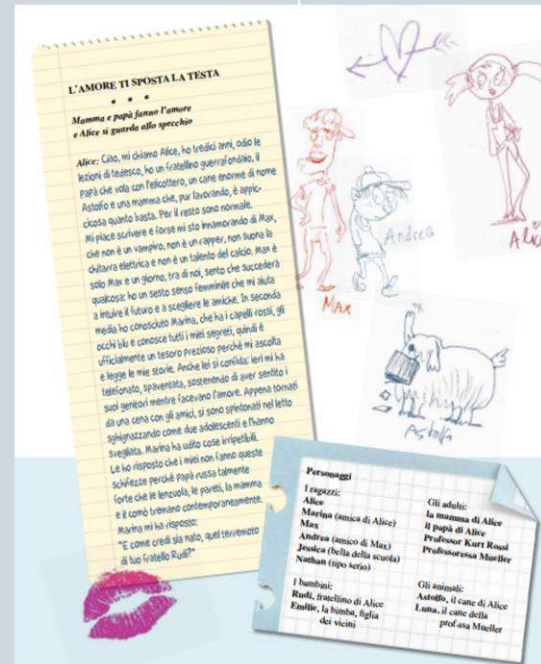 L'AMORE TI SPOSTA LA TESTA
* * *
Mamma e papà fanno l'amore
e Alice si guarda allo specchio
Alice: Ciao, mi chiamo Alice, ho tredici anni, odio le
lezioni di tedesco, ho un fratellino guerrafondaio, il
papà che vola con l'elicottero, un cane enorme di nome
Astolfo e una mamma che, pur lavorando, è appic-
cicosa quanto basta. Per il resto sono normale.
Mi piace scrivere e forse mi sto innamorando di Max,
che non è un vampiro, non è un rapper, non suona la
chitarra elettrica e non è un talento del calcio. Max è
solo Max e un giorno, tra di noi, sento che succederà
qualcosa: ho un sesto senso femminile che mi aiuta
a intuire il futuro e a scegliere le amiche. In seconda
media ho conosciuto Marina, che ha i capelli rossi, gli
occhi blu e conosce tutti i miei segreti, quindi è
ufficialmente un tesoro prezioso perché mi ascolta
e legge le mie storie. Anche lei si confida: ieri mi ha
telefonato, spaventata, sostenendo di aver sentito i
suoi genitori mentre facevano l'amore. Appena tornati
da una cena con gli amici, si sono spintonati nel letto
sghignazzando come due adolescenti e l'hanno
svegliata. Marina ha udito cose irripetibili.
Le ho risposto che i miei non fanno queste
schifezze perché papà russa talmente
forte che le lenzuola, le pareti, la mamma
e il comò tremano contemporaneamente.
Marina mi ha risposto:
"E come credi sia nato, quel terremoto
di tuo fratello Rudi?"
Alic
Andrea
Max
Astolfo
Personaggi
I ragazzi:
Alice
Marina (amica di Alice)
Max
Andrea (amico di Max)
Jessica (bella della scuola)
Nathan (tipo serio)
I bambini:
Rudi, fratellino di Alice
Emilie, la bimba, figlia
dei vicini
Gli adulti:
la mamma di Alice
il papà di Alice
Professor Kurt Rossi
Professoressa Mueller
Gli animali:
Astolfo, il cane di Alice
Luna, il cane della
prof.ssa Mueller